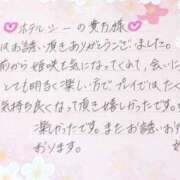 ♡ホテルシーの貴方様♡
はお誘い頂きありがとうございました。
前から姫咲を気になってくれて、会いに
とても明るく楽しい方でプレイではたく
気持ち良くなって頂き嬉しかったです。
楽しかったです。またお誘いお
おります。